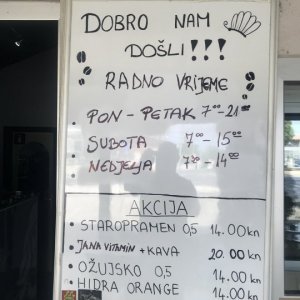 DOBRO NAM
DOŠLI!!!
RADNO VRIJEME
PON - PETAK 7⁰⁰-21⁰⁰
SUBOTA 7⁰⁰ - 15⁰⁰
NEDJELJA 7⁰⁰ - 14⁰⁰
AKCIJA
• STAROPRAMEN 0,5 14.00kn
• JANA VITAMIN + KAVA 20.00 kn
• OŽUJSKO 0,5 14.00kn
• HIDRA ORANGE 14.00kn